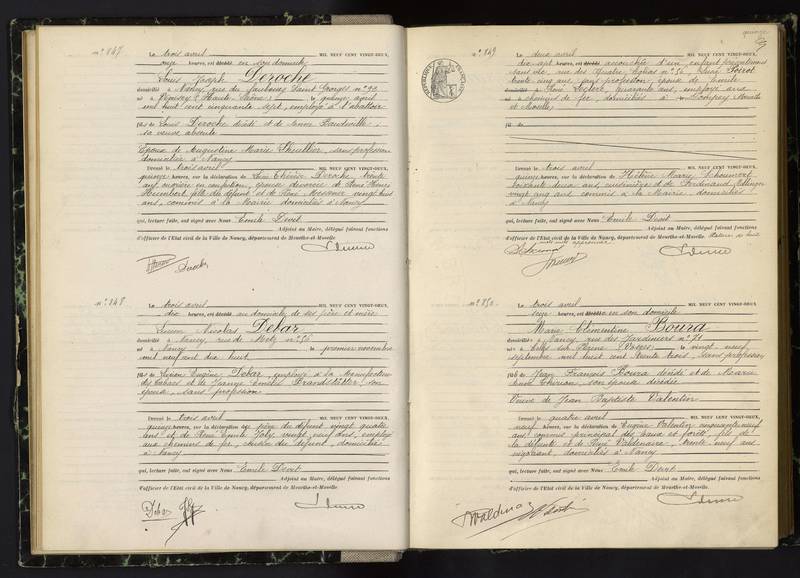 n° 847
Le trois avril MIL NEUF CENT VINGT-DEUX,
onze heures, est décédé en son domicile
Louis Joseph DEROCHE
domicilié à Nancy, rue du faubourg Saint Georges n° 93
né à (Haute Saône) le quinze avril
mil huit cent cinquante sept, employé à l'abattoir
fils de Louis Deroche décédé et de
sa veuve absente
Epoux de Augustine Marie Theullier, sans profession
domiciliée à Nancy
Dressé le trois avril
quinze heures, sur la déclaration de Deroche, trente
ans, épouse divorcée de René Henri
fille du défunt et de René vingt huit
ans, commis à la Mairie domiciliés à Nancy
qui, lecture faite, ont signé avec Nous Emile Devit
Adjoint au Maire, délégué faisant fonctions
d'officier de l'Etat civil de la Ville de Nancy, département de Meurthe-et-Moselle
n° 848
Le trois avril MIL NEUF CENT VINGT-DEUX,
dix heures, est décédé au domicile de ses père et mère
Lucien Nicolas DEBAR
domicilié à Nancy, rue de Metz n° 56
né à Nancy le premier novembre
mil neuf cent dix huit
fils de Lucien Eugène Debar, employé à la Manufacture
des tabacs et de Jeanne Amélie son
épouse, sans profession
Dressé le trois avril
quinze heures, sur la déclaration du père du défunt vingt quatre
ans et de René Emile Joly, vingt neuf ans, employé
aux chemins de fer, du défunt, domiciliés
à Nancy
qui, lecture faite, ont signé avec Nous Emile Devit
Adjoint au Maire, délégué faisant fonctions
d'officier de l'Etat civil de la Ville de Nancy, département de Meurthe-et-Moselle
Debar
quinze
n° 849
Le deux avril MIL NEUF CENT VINGT-DEUX,
dix sept heures, est accouchée d'un enfant
sans vie, rue des Quatre Eglises n° 56, Poirot
trente cinq ans, sans profession, épouse de
domicilié à René Leclerc, quarante ans, employé aux
né à chemins de fer, domiciliés à Pompey Meurthe
et Moselle
fils de
Dressé le trois avril
quinze heures, sur la déclaration de Hélène Marie
soixante deux ans, cuisinière et de Ferdinand
vingt ans commis à la Mairie domiciliés
à Nancy
qui, lecture faite, ont signé avec Nous Emile Devit
Adjoint au Maire, délégué faisant fonctions
d'officier de l'Etat civil de la Ville de Nancy, département de Meurthe-et-Moselle
n° 850
Le trois avril MIL NEUF CENT VINGT-DEUX,
seize heures, est décédée en son domicile
Marie Clémentine BOURA
domiciliée à Nancy, rue des Jardiniers n° 71
née à Celles sur Plaine (Vosges) le vingt neuf
septembre mil huit cent trente trois, sans profession
fille de Jean François Boura décédé et de Marie
Anne Thirion, son épouse décédée
Veuve de Jean Baptiste Valentin
Dressé le quatre avril
neuf heures, sur la déclaration de Eugène Valentin cinquante neuf
ans, commis principal des eaux et forêts, fils de
la défunte et de René Valdenaire, trente neuf ans
négociant, domiciliés à Nancy
qui, lecture faite, ont signé avec Nous Emile Devit
Adjoint au Maire, délégué faisant fonctions
d'officier de l'Etat civil de la Ville de Nancy, département de Meurthe-et-Moselle